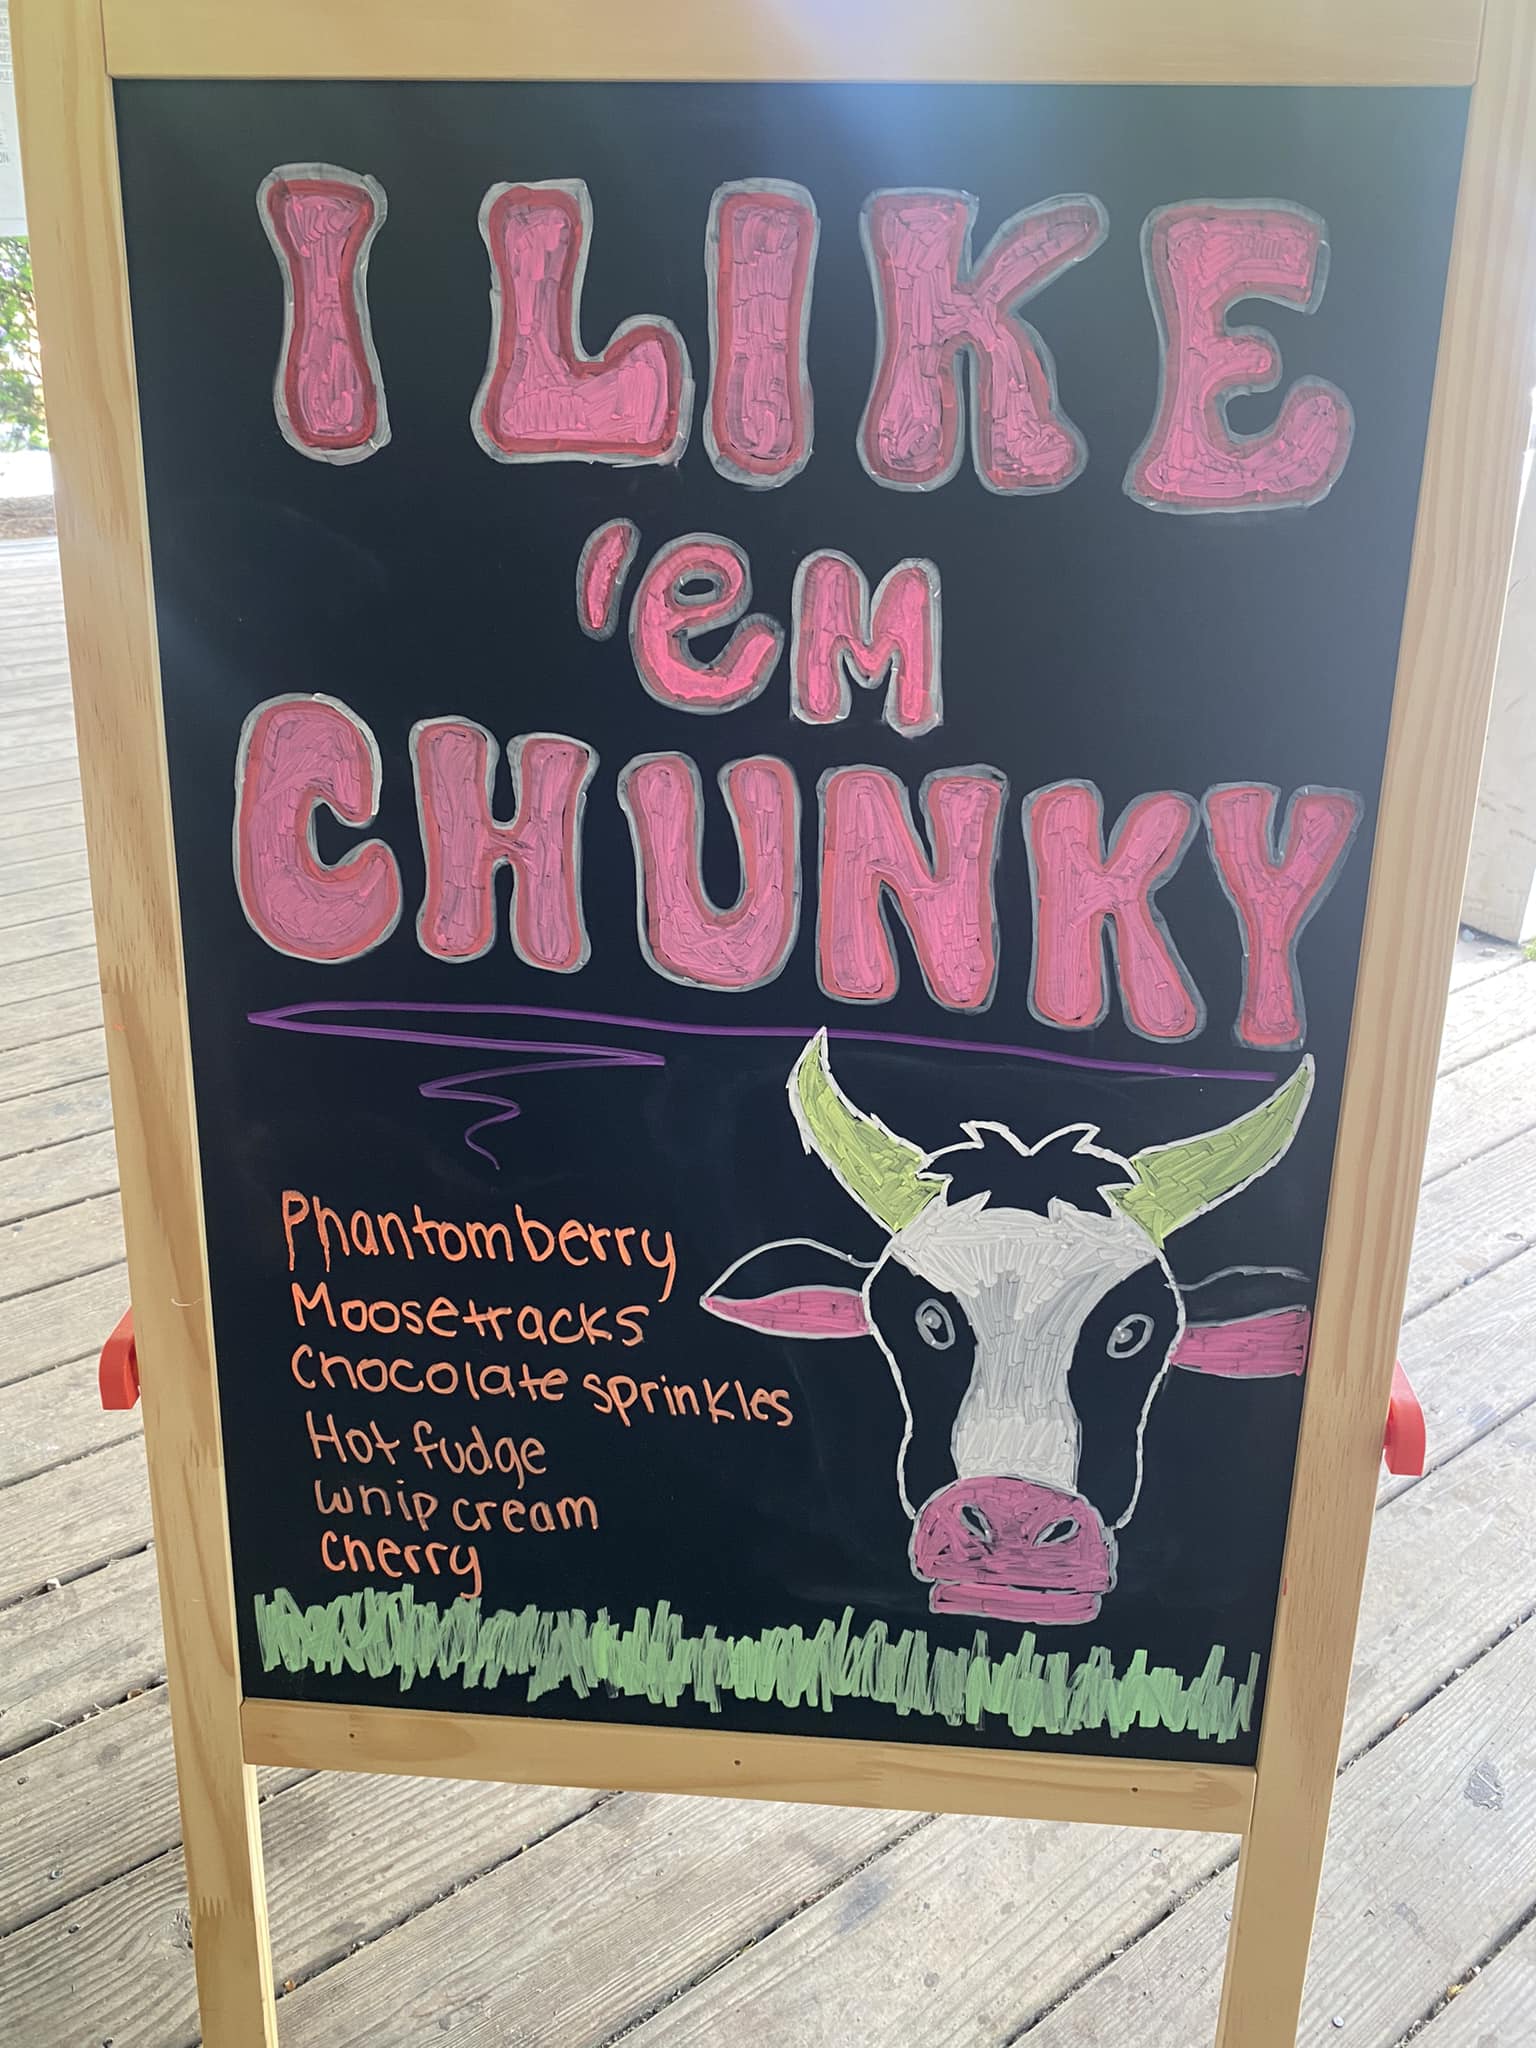 I LIKE
'em
CHUNKY
Phantomberry
Moosetracks
Chocolate sprinkles
Hot fudge
whip cream
cherry